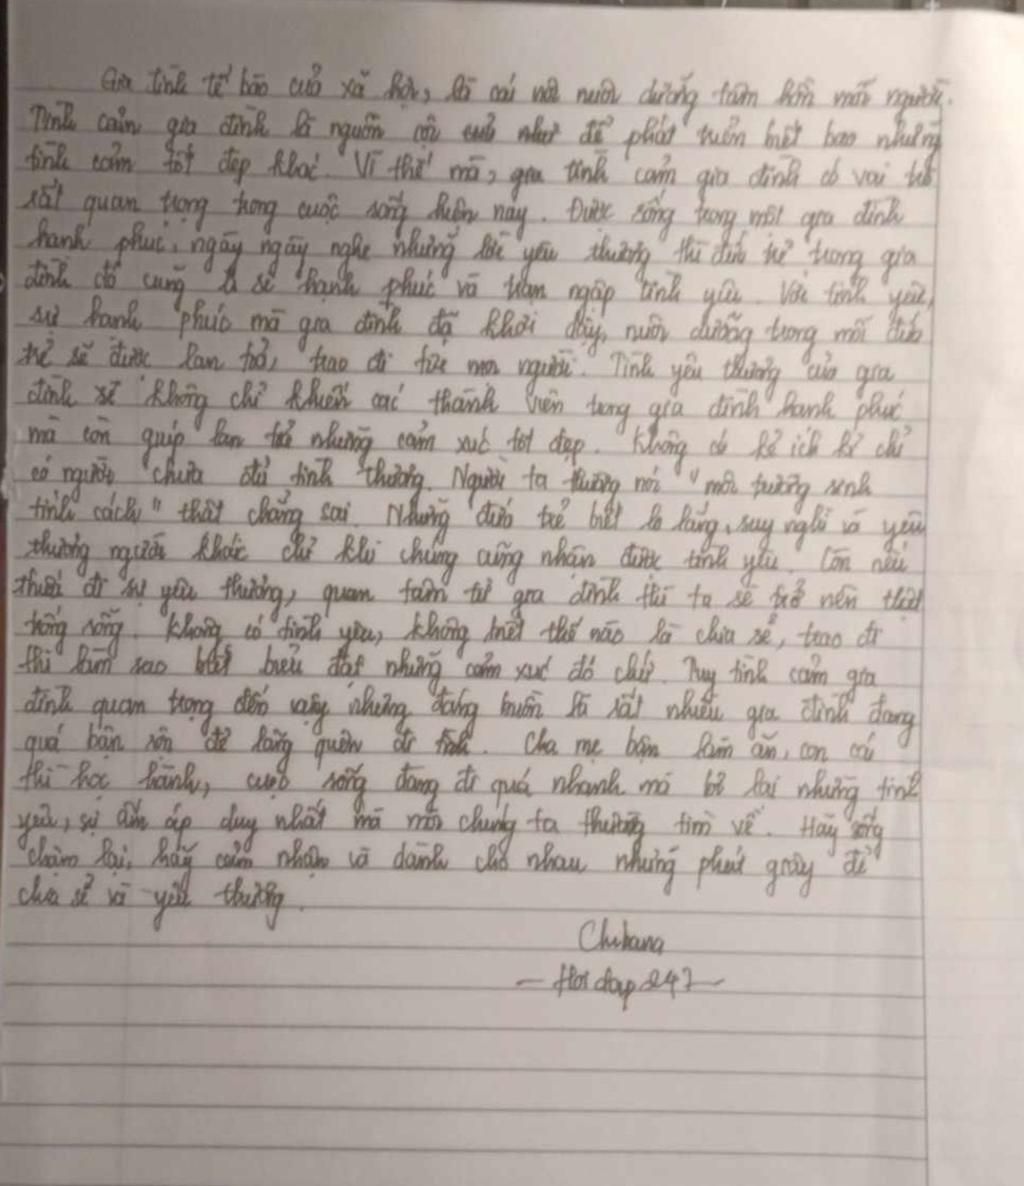 Gia đình tế bào của xã hội, là cái nôi nuôi dưỡng tâm hồn mỗi người.
Tình cảm gia đình là nguồn cội như để phát triển biết bao những
tình cảm tốt đẹp khác. Vì thế mà, gia tình cảm gia đình có vai trò
rất quan trọng trong cuộc sống hiện nay. Được sống trong một gia đình
hạnh phúc, ngày ngày nghe những lời yêu thương thì đứa trẻ trong gia
đình đó cũng sẽ hạnh phúc và tràn ngập tình yêu. Với tình yêu,
sự hạnh phúc mà gia đình đã khơi dậy, nuôi dưỡng trong mỗi đứa
trẻ sẽ được lan toả, trao đi tới mọi người. Tình yêu thương của gia
đình sẽ không chỉ khiến các thành viên trong gia đình hạnh phúc
mà còn giúp lan toả những cảm xúc tốt đẹp. Không có kẻ ích kỉ chỉ
có người chưa đủ tình thương. Người ta thường nói "môi trường sinh
tính cách" thật chẳng sai. Những đứa trẻ biết lo lắng, suy nghĩ và yêu
thương người khác chỉ khi chúng cũng nhận được tình yêu. Còn nếu
thiếu đi sự yêu thương, quan tâm từ gia đình thì ta sẽ trở nên thật
trống rỗng. Không có tình yêu, không biết thế nào là chia sẻ, trao đi
thì làm sao biết biểu đạt những cảm xúc đó chứ. Tuy tình cảm gia
đình quan trọng đến vậy nhưng đáng buồn là rất nhiều gia đình đang
quá bận rộn để lãng quên đi. Cha mẹ bận làm ăn, con cái
thì học hành, cuộc sống đang đi quá nhanh mà bỏ lại những tình
yêu, sự ấm áp duy nhất mà mỗi chúng ta thường tìm về. Hãy sống
chậm lại, hãy cảm nhận và dành cho nhau những phút giây để
chia sẻ và yêu thương.
Chibana
— Hoidap247 —